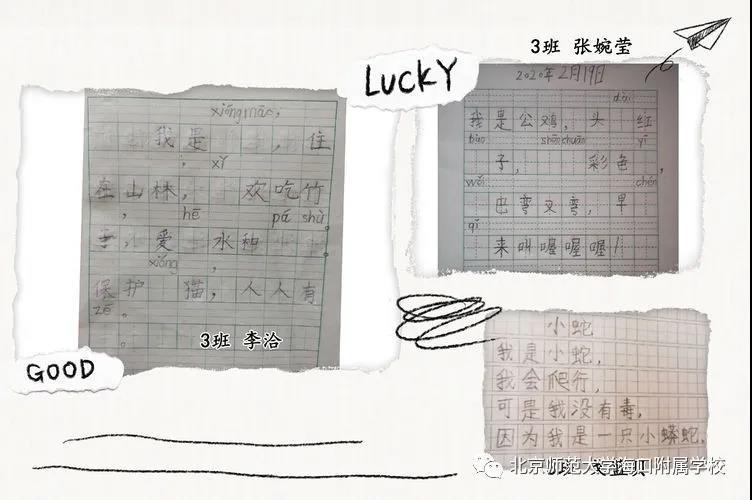 3班 张婉莹
LUCKY
2020年2月19日
dài
我是公鸡，头 红
bào shēnchuān yī
子， 彩色，
wěi chén
巴弯又弯，早
qǐ
来叫喔喔喔！
xióngmāo，
我是 ，住
xǐ
在山林， 欢吃竹
hē pá shù
子，爱 水和
xióng
保护 猫，人人有
zé
。
3班 李洽
GOOD
小蛇
我是小蛇，
我会爬行，
可是我没有毒，
因为我是一只小蟒蛇。
北京师范大学海口附属学校